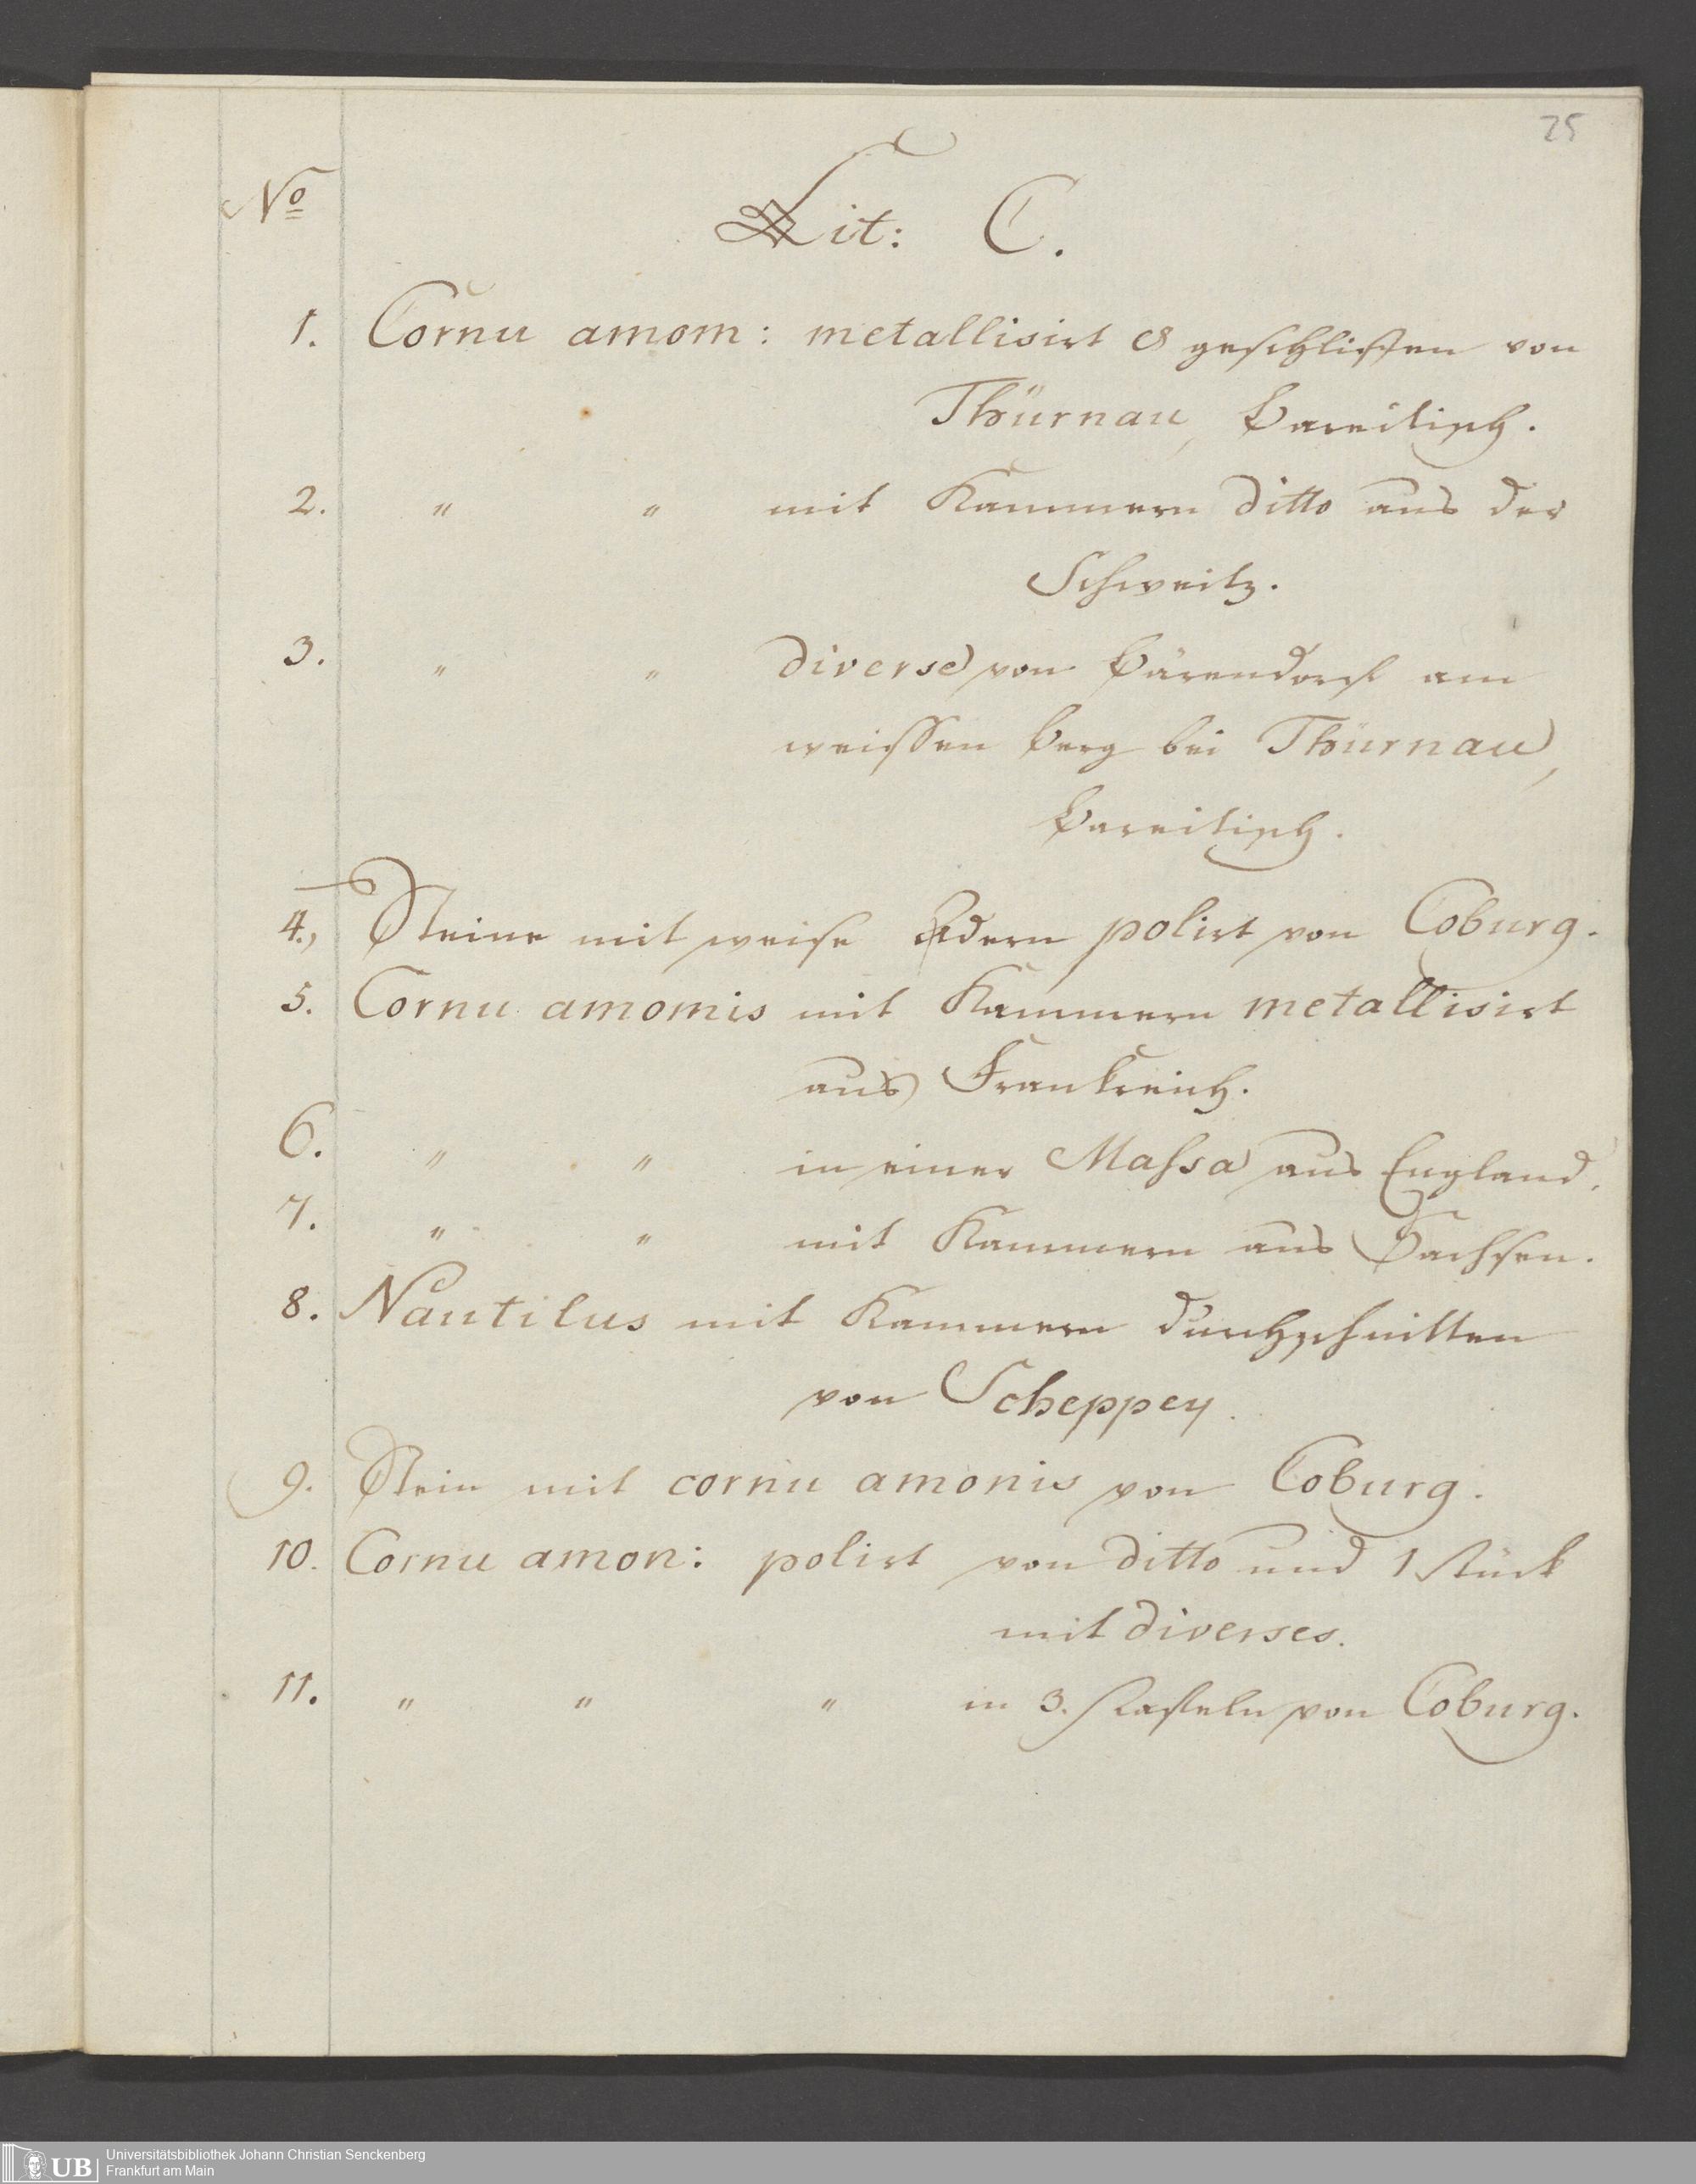 25
No
Lit: C.
1. Cornu amom: metallisirt & geschlissen von
Thürnau, Bareitisch.
2. " " mit Kammern ditto aus der
Schweitz.
3. " " diverse von Bärendorf am
weissen Berg bei Thürnau,
Bareitisch.
4., Steine mit weise Adern polirt von Coburg.
5. Cornu amomis mit Kammern metallisirt
aus Frankreich.
6. " " in einer Massa aus England.
7. " " mit Kammern aus Sachsen.
8. Nautilus mit Kammern durchschnitten
von Scheppey.
9. Stein mit cornu amonis von Coburg.
10. Cornu amon: polirt von ditto und 1 Stück
mit diverses.
11. " " " in 3. von Coburg.
UB
Universitätsbibliothek Johann Christian Senckenberg
Frankfurt am Main